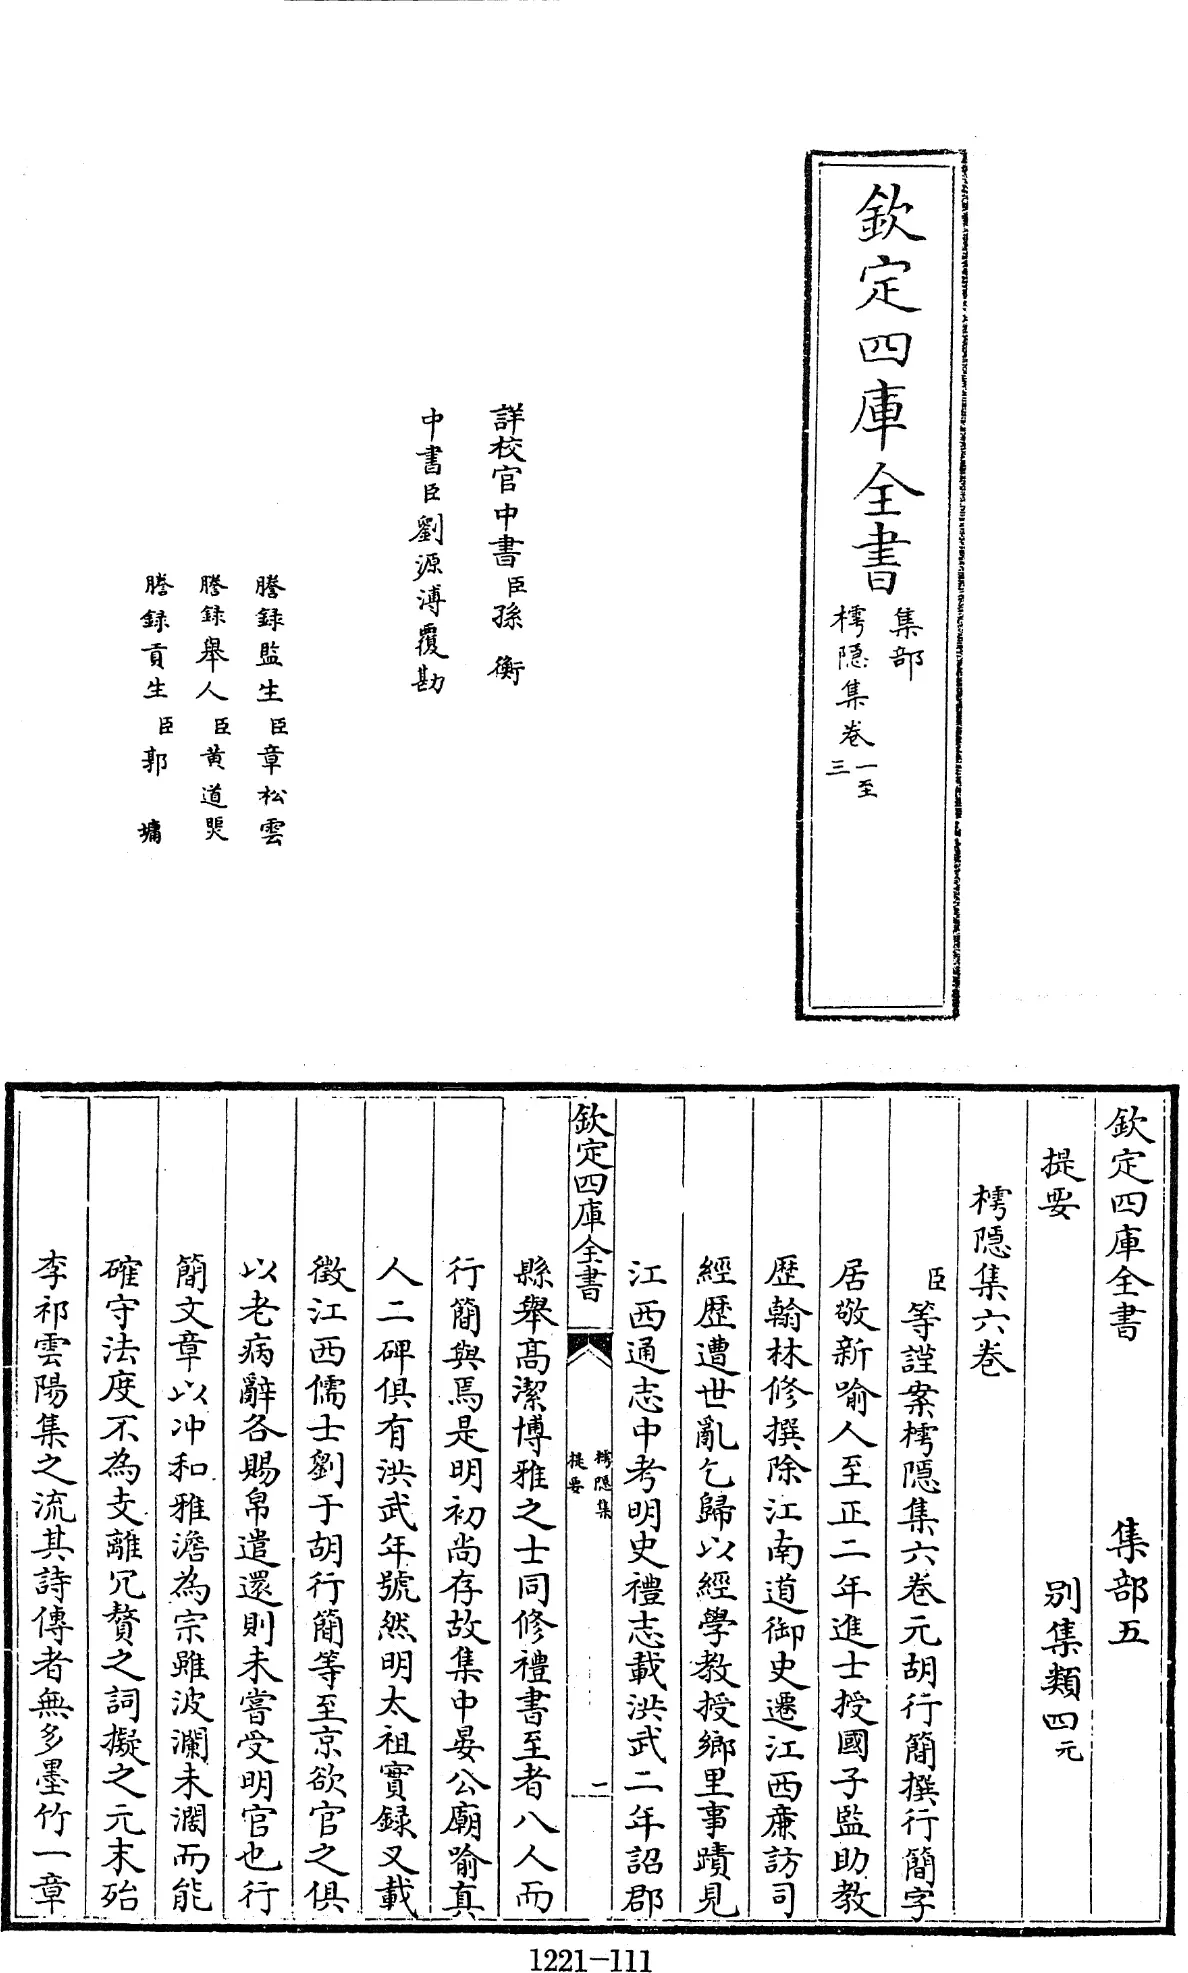 欽定四庫全書
集部
樗隱集卷一至三
詳校官中書臣孫衡
中書臣劉源溥覆勘
謄録監生臣章松雲
謄録舉人臣黄道煚
謄録貢生臣郭墉
欽定四庫全書 集部五
提要 别集類四元
樗隱集六卷
臣等謹案樗隱集六卷元胡行簡撰行簡字
居敬新喻人至正二年進士授國子監助教
歴翰林修撰除江南道御史遷江西亷訪司
經歴遭世亂乞歸以經學教授鄉里事蹟見
江西通志中考明史禮志載洪武二年詔郡
欽定四庫全書
樗隱集
提要
二
縣舉髙潔博雅之士同修禮書至者八人而
行簡與焉是明初尚存故集中晏公廟喻真
人二碑俱有洪武年號然明太祖實録又載
徴江西儒士劉于胡行簡等至京欲官之俱
以老病辭各賜帛遣還則未嘗受明官也行
簡文章以冲和雅澹為宗雖波瀾未濶而能
確守法度不為支離冗贅之詞擬之元末殆
李祁雲陽集之流其詩傳者無多墨竹一章
1221-111